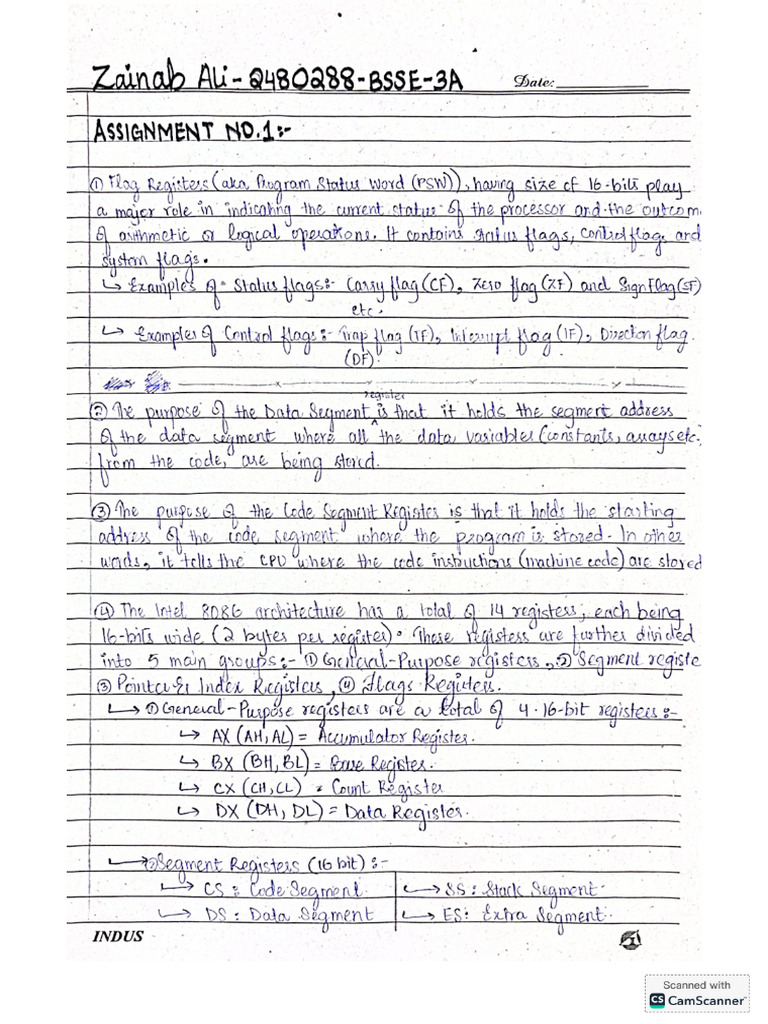 Zainab Ali - 2480288-BSSE-3A Date:
ASSIGNMENT NO.1:-
① Flag Registers (aka Program Status Word (PSW)), having size of 16-bits play
a major role in indicating the current status of the processor and the outcom
of arithmetic or logical operations. It contains status flags, control flag, and
system flags.
↳ Examples of Status flags:- Carry flag (CF), Zero flag (ZF) and Sign Flag (SF)
etc.
↳ Examples of Control flags:- Trap flag (TF), Interrupt flag (IF), Direction flag
(DF).
register
② The purpose of the Data Segment ^ is that it holds the segment address
of the data segment where all the data variables (constants, arrays etc.
from the code, are being stored.
③ The purpose of the Code Segment Register is that it holds the starting
address of the code segment where the program is stored. In other
words, it tells the CPU where the code instructions (machine code) are stored
④ The Intel 8086 architecture has a total of 14 registers, each being
16-bits wide (2 bytes per register). These registers are further divided
into 5 main groups:- ① General-Purpose registers, ② Segment registe
③ Pointer & Index Registers, ④ Flags Registers.
↳ ① General-Purpose registers are a total of 4 16-bit registers:-
↳ AX (AH, AL) = Accumulator Register.
↳ BX (BH, BL) = Base Register.
↳ CX (CH, CL) = Count Register
↳ DX (DH, DL) = Data Register.
↳ ② Segment Registers (16 bit) :-
↳ CS : Code Segment. ↳ SS : Stack Segment.
↳ DS : Data Segment ↳ ES: Extra Segment.
INDUS
Scanned with
CS CamScanner